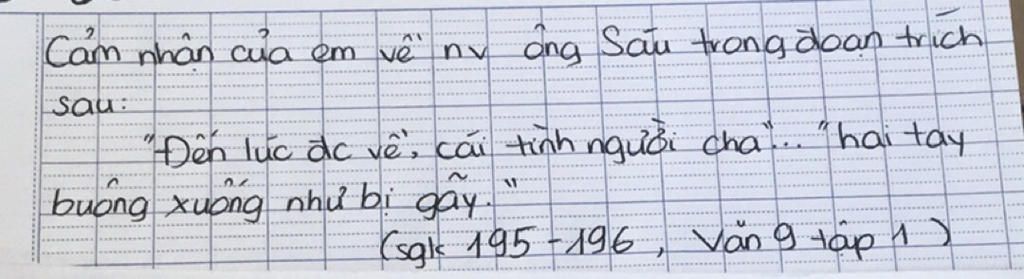 Cảm nhận của em về nv ông Sáu trong đoạn trích
sau:
"Đến lúc đc về, cái tình người cha"... "hai tay
buông xuống như bị gãy."
(sgk 195-196, Văn 9 tập 1)